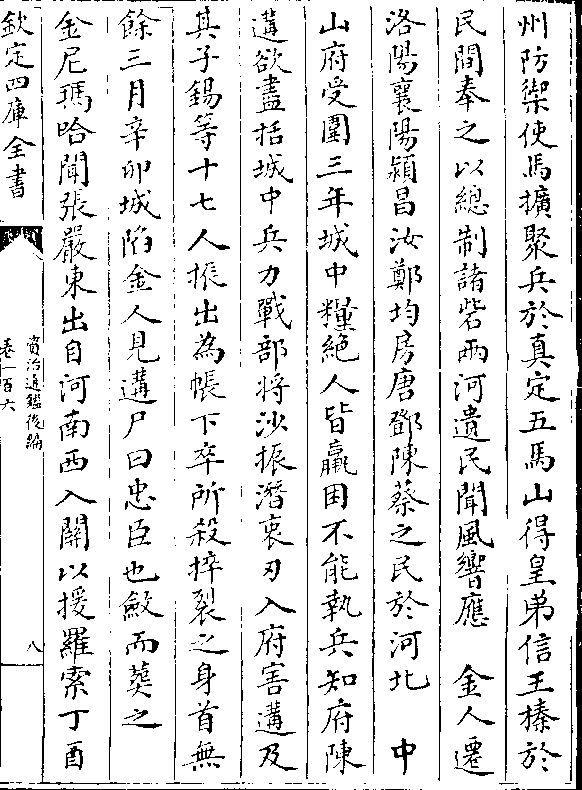 州防禦使馬擴聚兵於真定五馬山得皇弟信王榛於
民間奉之以總制諸砦兩河遺民聞風響應　金人遷
洛陽襄陽潁昌汝鄭均房唐鄧陳蔡之民於河北　中
山府受圍三年城中糧絶人皆羸困不能執兵知府陳
遘欲盡括城中兵力戰部將沙振潛衷刃入府害遘及
其子錫等十七人振出為帳下卒所殺捽裂之身首無
餘三月辛卯城陷金人見遘尸曰忠臣也斂而葬之
金尼瑪哈聞張嚴東出自河南西入關以援羅索丁酉
欽定四庫全書
資治通鑑後編
卷一百六
八